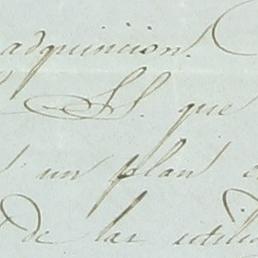 adquisicion.
SS. que
un plan
de las utili